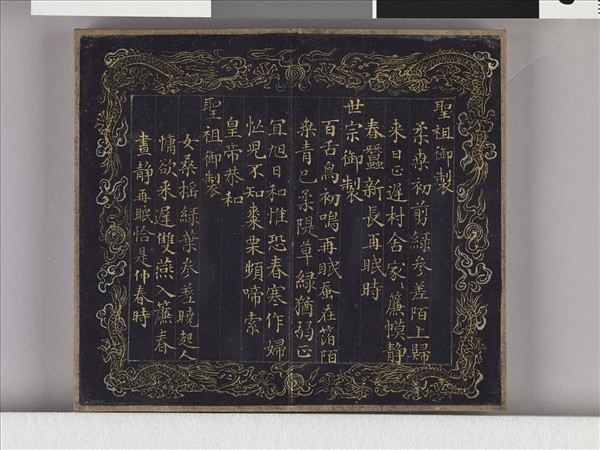 聖祖御製
柔桒初剪綠參差陌上歸
來日正遲村舍家〻簾幙靜
春蠶新長再眠時
世宗御製
百舌鳥初鳴再眠蚕在箔陌
桒青已柔隄草綠猶弱正
宜旭日和惟恐春寒作婦
忙兒不知棗栗頻啼索
皇帝恭和
聖祖御製
女桑搖綠葉參差曉起人
慵欲采遲雙燕入簾春
晝静再眠恰是仲春時